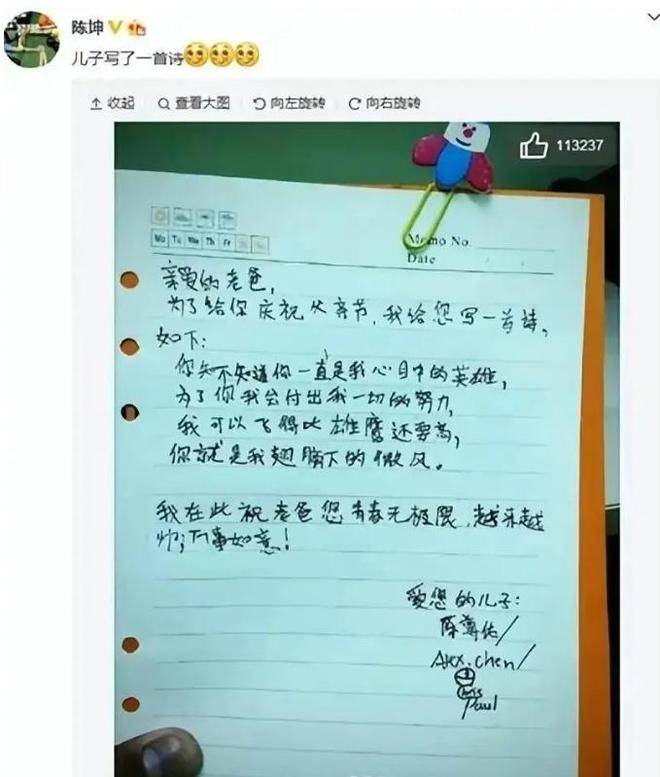 陈坤
儿子写了一首诗
收起 查看大图 向左旋转 向右旋转
113237
Memo No.
Mo Tu We Th Fr Sa Su
Date
亲爱的老爸，
为了给你庆祝父亲节，我给您写一首诗，
如下：
你知不知道你一直是我心目中的英雄，
为了你我会付出我一切的努力，
我可以飞得比雄鹰还要高，
你就是我翅膀下的微风。
我在此祝老爸您青春无极限，越来越
帅，万事如意！
爱您的儿子：
陈尊佑/
Alex.chen/
Paul